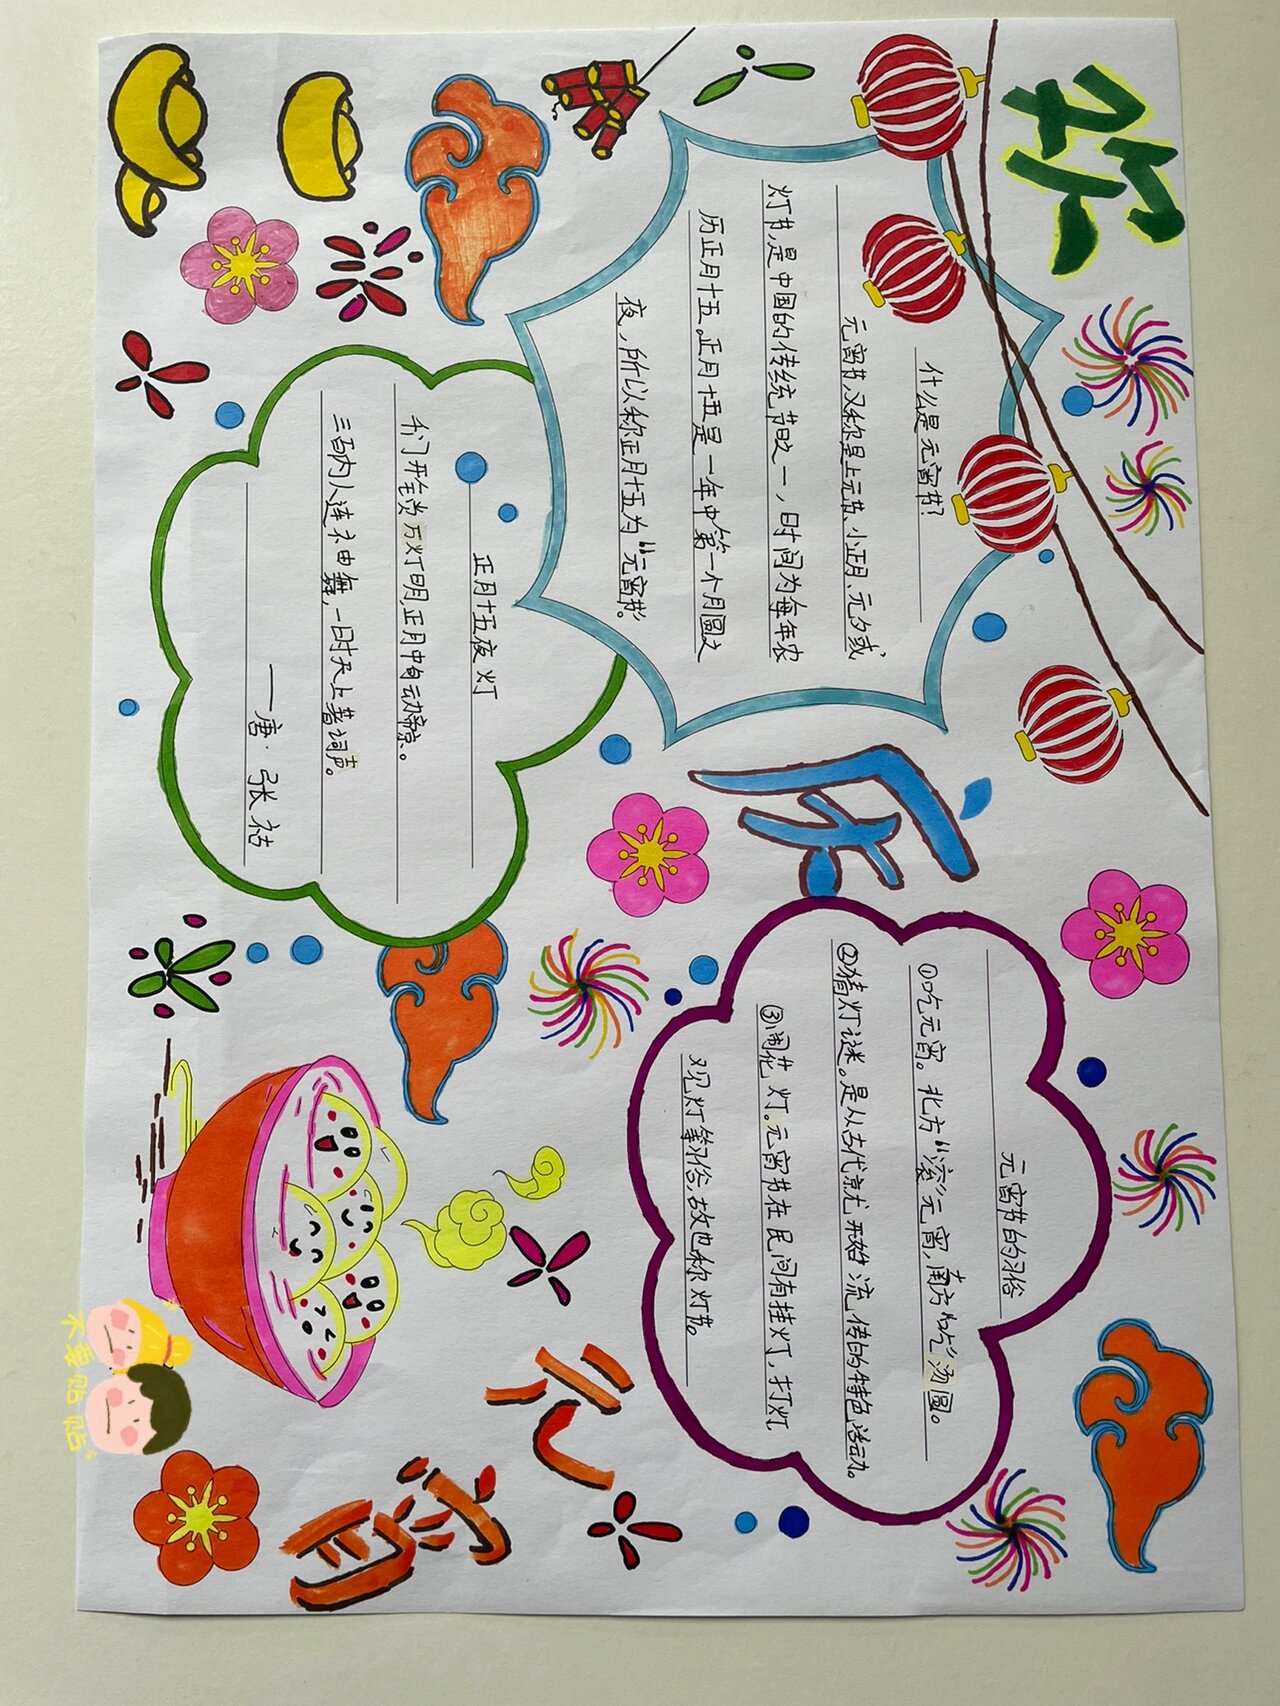 欢庆
什么是元宵节?
元宵节,又称是上元节、小正月、元夕或
灯节,是中国的传统节日之一,时间为每年农
历正月十五。正月十五是一年中第一个月圆之
夜,所以称正月十五为“元宵节”。
元宵节的习俗
①吃元宵。北方“滚”元宵,南方“吃”汤圆。
②猜灯谜。是从古代就开始流传的特色活动。
③闹花灯。元宵节在民间有挂灯,打灯,
观灯等习俗,故也称灯节。
正月十五夜灯
千门开锁万灯明,正月中旬动帝京。
三百内人连袖舞,一时天上著词声。
——唐·张祜
元宵
木要贴贴